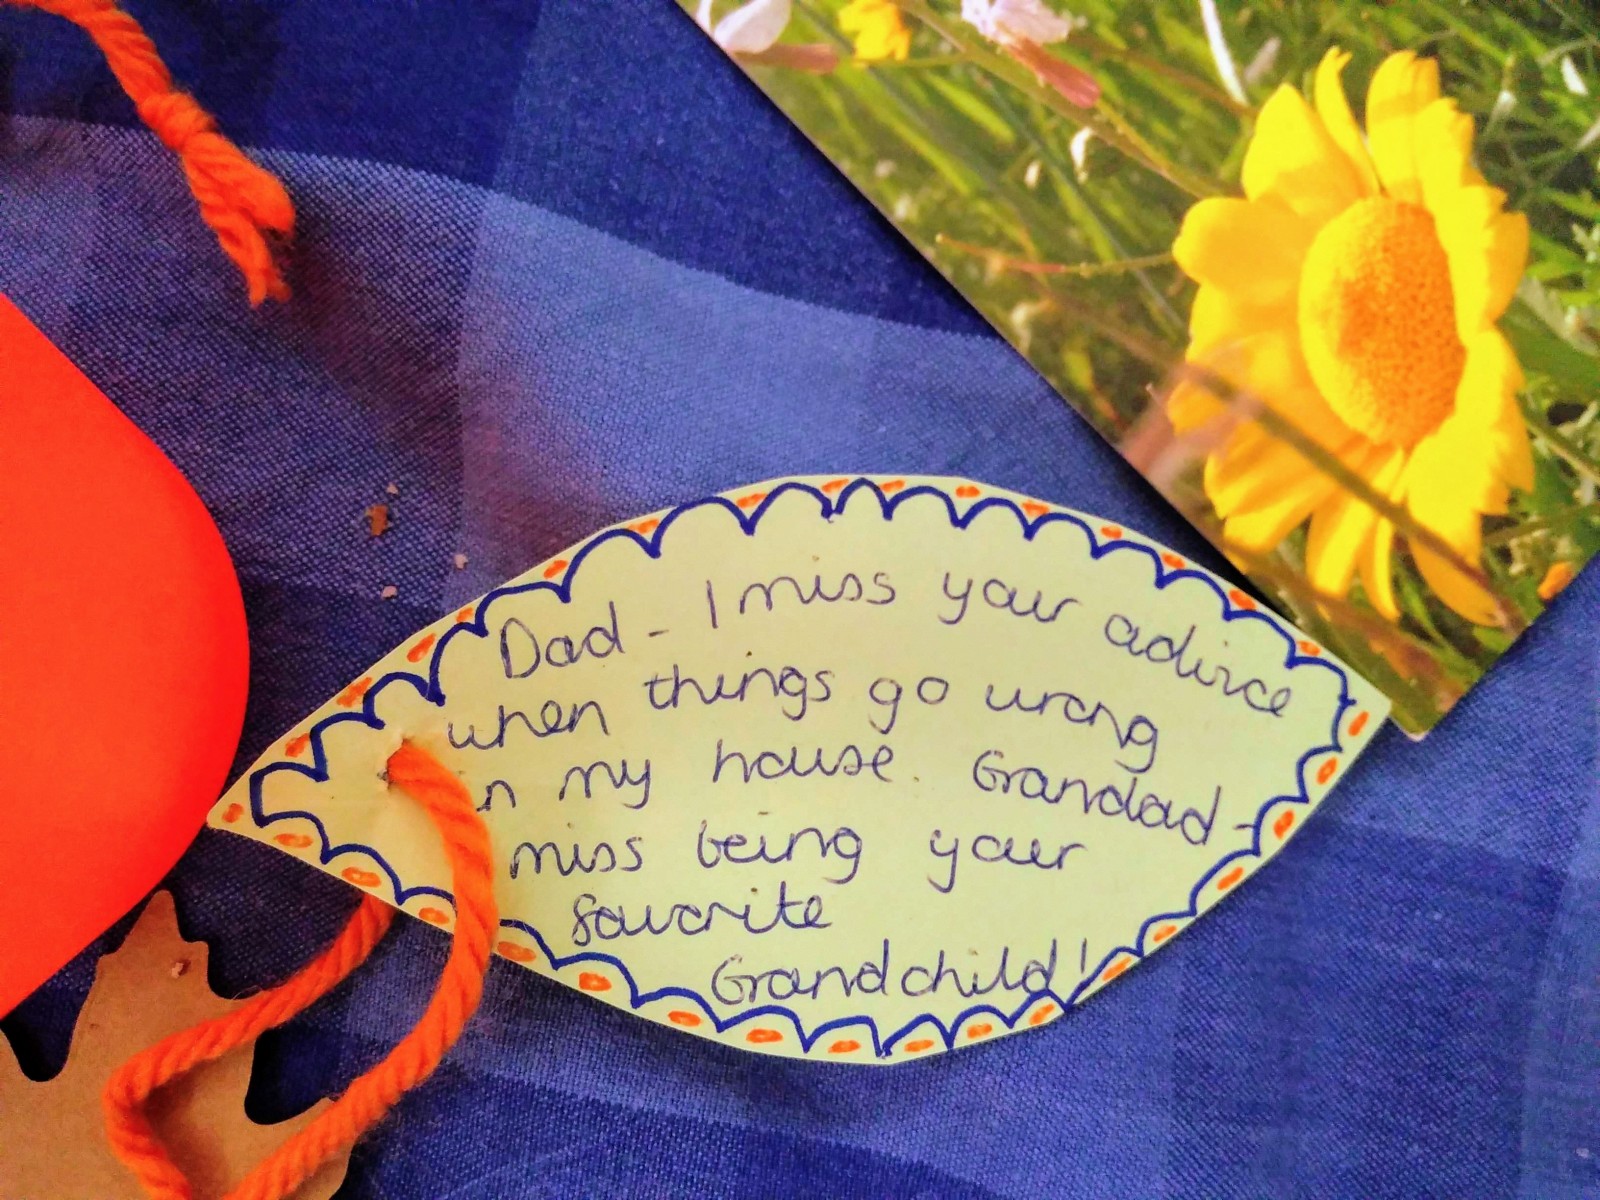 Dad - I miss your advice
when things go wrong
in my house. Grandad -
miss being your
favourite
Grandchild!